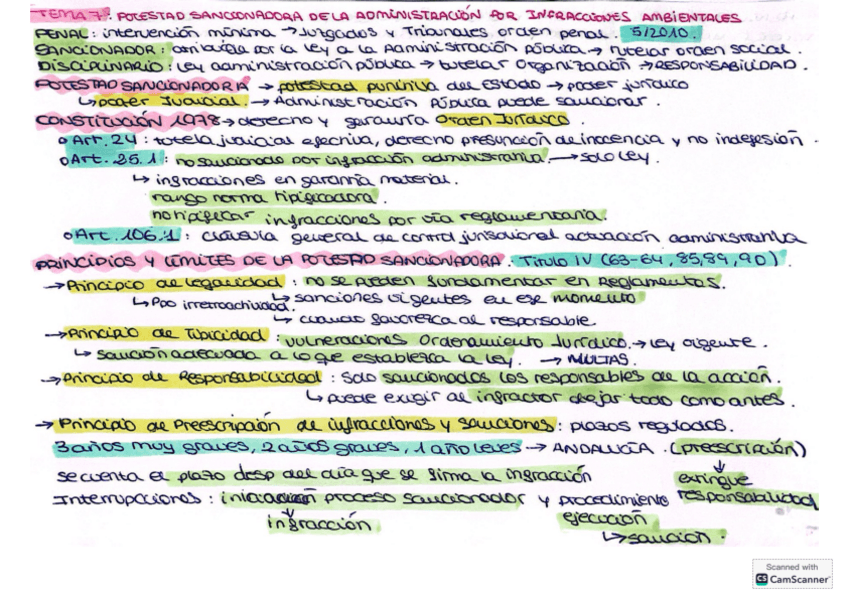 TEMA 7: POTESTAD SANCIONADORA DE LA ADMINISTRACIÓN POR INFRACCIONES AMBIENTALES
PENAL: intervención mínima → Juzgados y Tribunales, orden penal 5/2010.
SANCIONADOR: atribuida por la ley a la Administración pública → tutelar orden social.
DISCIPLINARIO: Ley administración pública → tutelar organización → RESPONSABILIDAD.
POTESTAD SANCIONADORA → potestad punitiva del estado → poder jurídico
↳ poder Judicial → Administración Pública puede sancionar.
CONSTITUCIÓN 1978 → derecho y garantía Orden Jurídico.
o Art. 24: tutela judicial efectiva, derecho presunción de inocencia y no indefesión.
o Art. 25.1: no sancionado por infracción administrativa. → solo ley.
↳ infracciones en garantía material.
rango norma tipificadora.
no tipificar infracciones por vía reglamentaria.
o Art. 106.1: cláusula general de control jurisdicional actuación administrativa
PRINCIPIOS Y LÍMITES DE LA POTESTAD SANCIONADORA. Título IV (63-64, 85, 89, 90).
→ Principio de legalidad: no se pueden fundamentar en Reglamentos.
↳ Ppo irretroactividad. ↳ sanciones vigentes en ese momento
↳ cuando favorezca al responsable.
→ Principio de Tipicidad: vulneraciones Ordenamiento Jurídico. → ley vigente.
↳ sanción adecuada a lo que establezca la ley. → MULTAS.
→ Principio de Responsabilidad: Solo sancionados los responsables de la acción.
↳ puede exigir al infractor dejar todo como antes.
→ Principio de Preescripción de infracciones y sanciones: plazos regulados.
3 años muy graves, 2 años graves, 1 año leves → ANDALUCÍA. (preescricción)
se cuenta el plazo desp del día que se firma la infracción
↓ extingue
Interrupciones: iniciación proceso sancionador y procedimiento responsabilidad
↓ infracción
ejecución
↳ sanción.
Scanned with
CS CamScanner